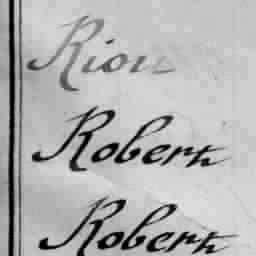 Riou
Robert
Robert